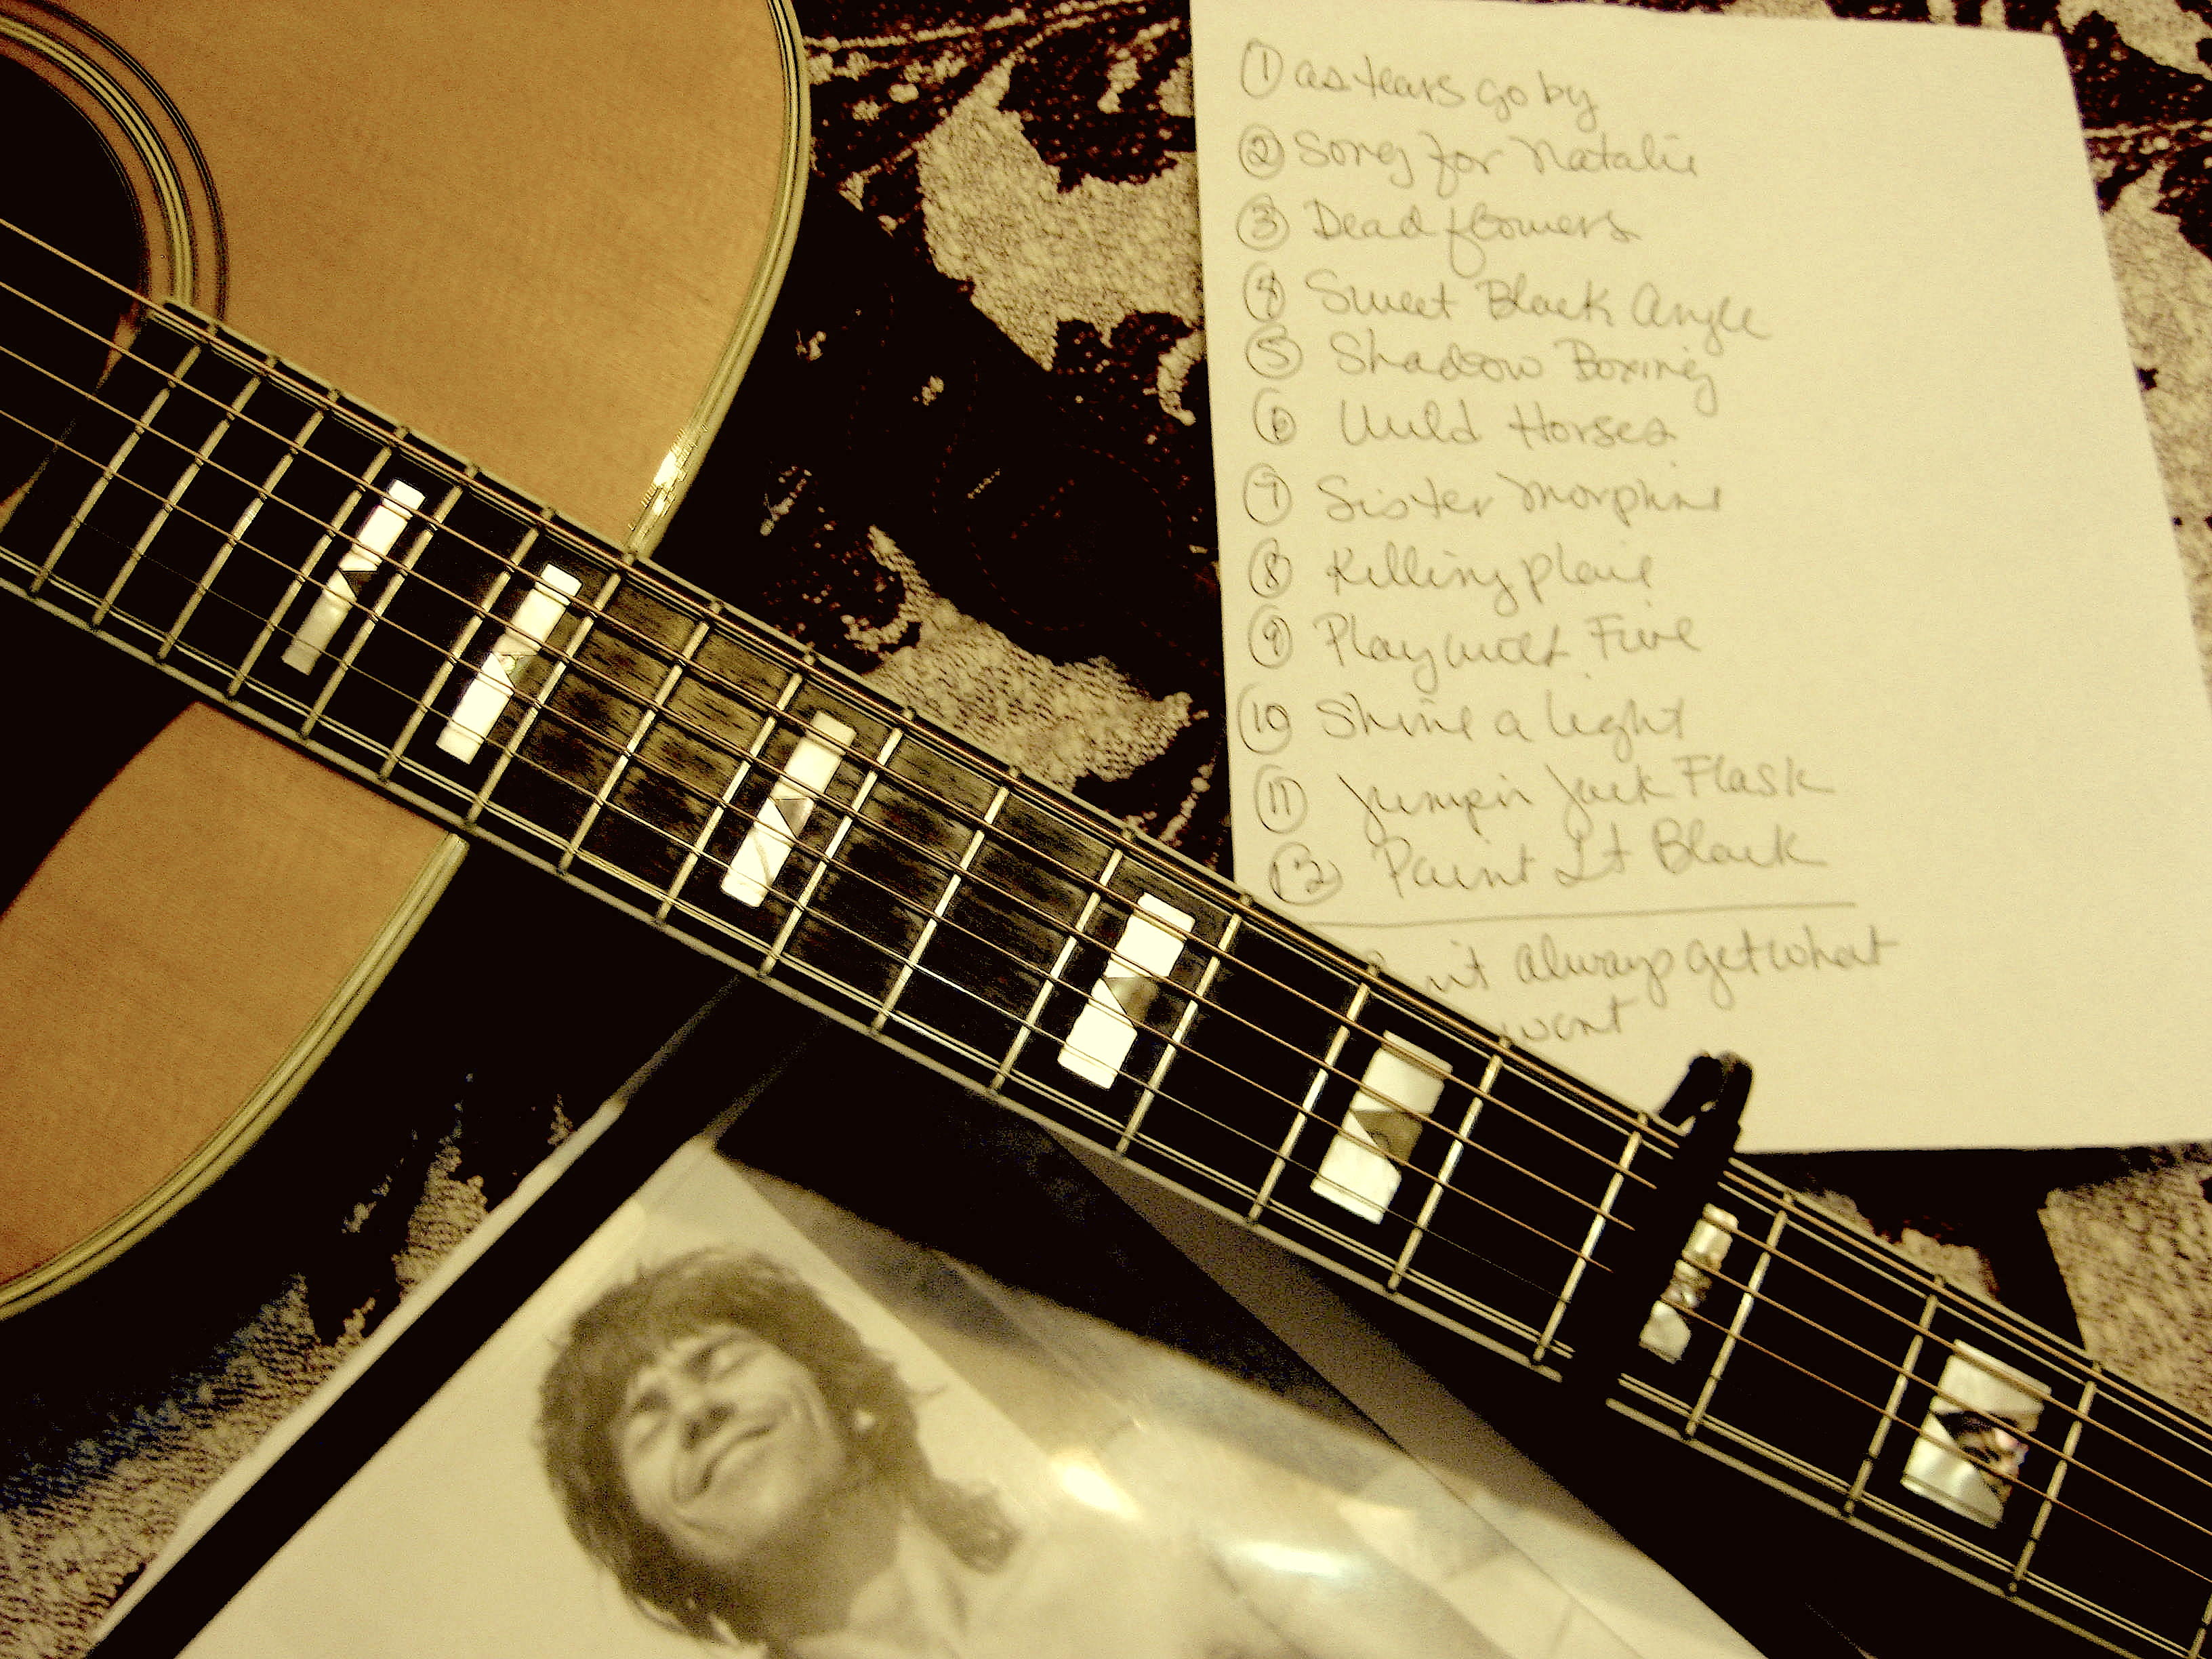 1 as tears go by
2 Song for Natalie
3 Dead flowers
4 Sweet Black Angle
5 Shadow Boxing
6 Wild Horses
7 Sister morphine
8 Killing place
9 Play with Fire
10 Shine a light
11 Jumpin Jack Flash
12 Paint It Black
always get what
want